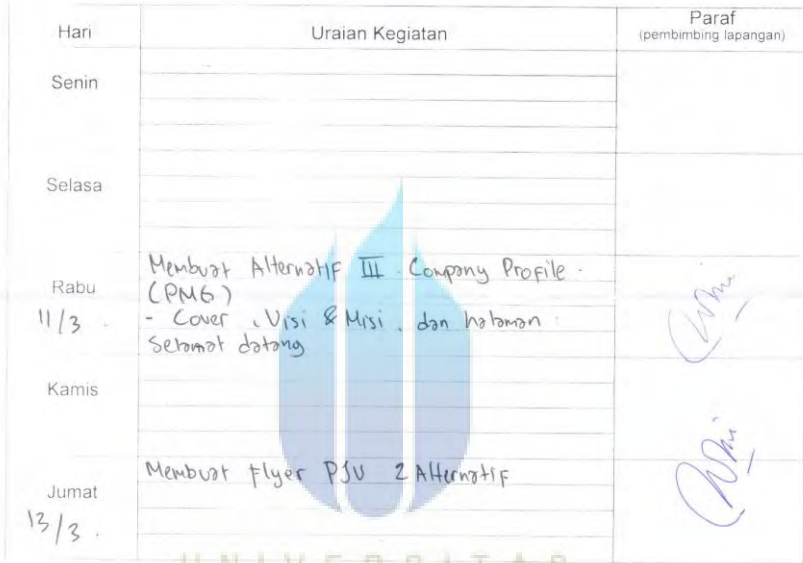 Hari Uraian Kegiatan Paraf
(pembimbing lapangan)
Senin
Selasa
Rabu
11/3
Membuat Alternatif III . Company Profile .
(PMG)
- Cover , Visi & Misi , dan halaman
Selamat datang
Kamis
Jumat
13/3 .
Membuat Flyer PJU 2 Alternatif
UNIVERSITAS